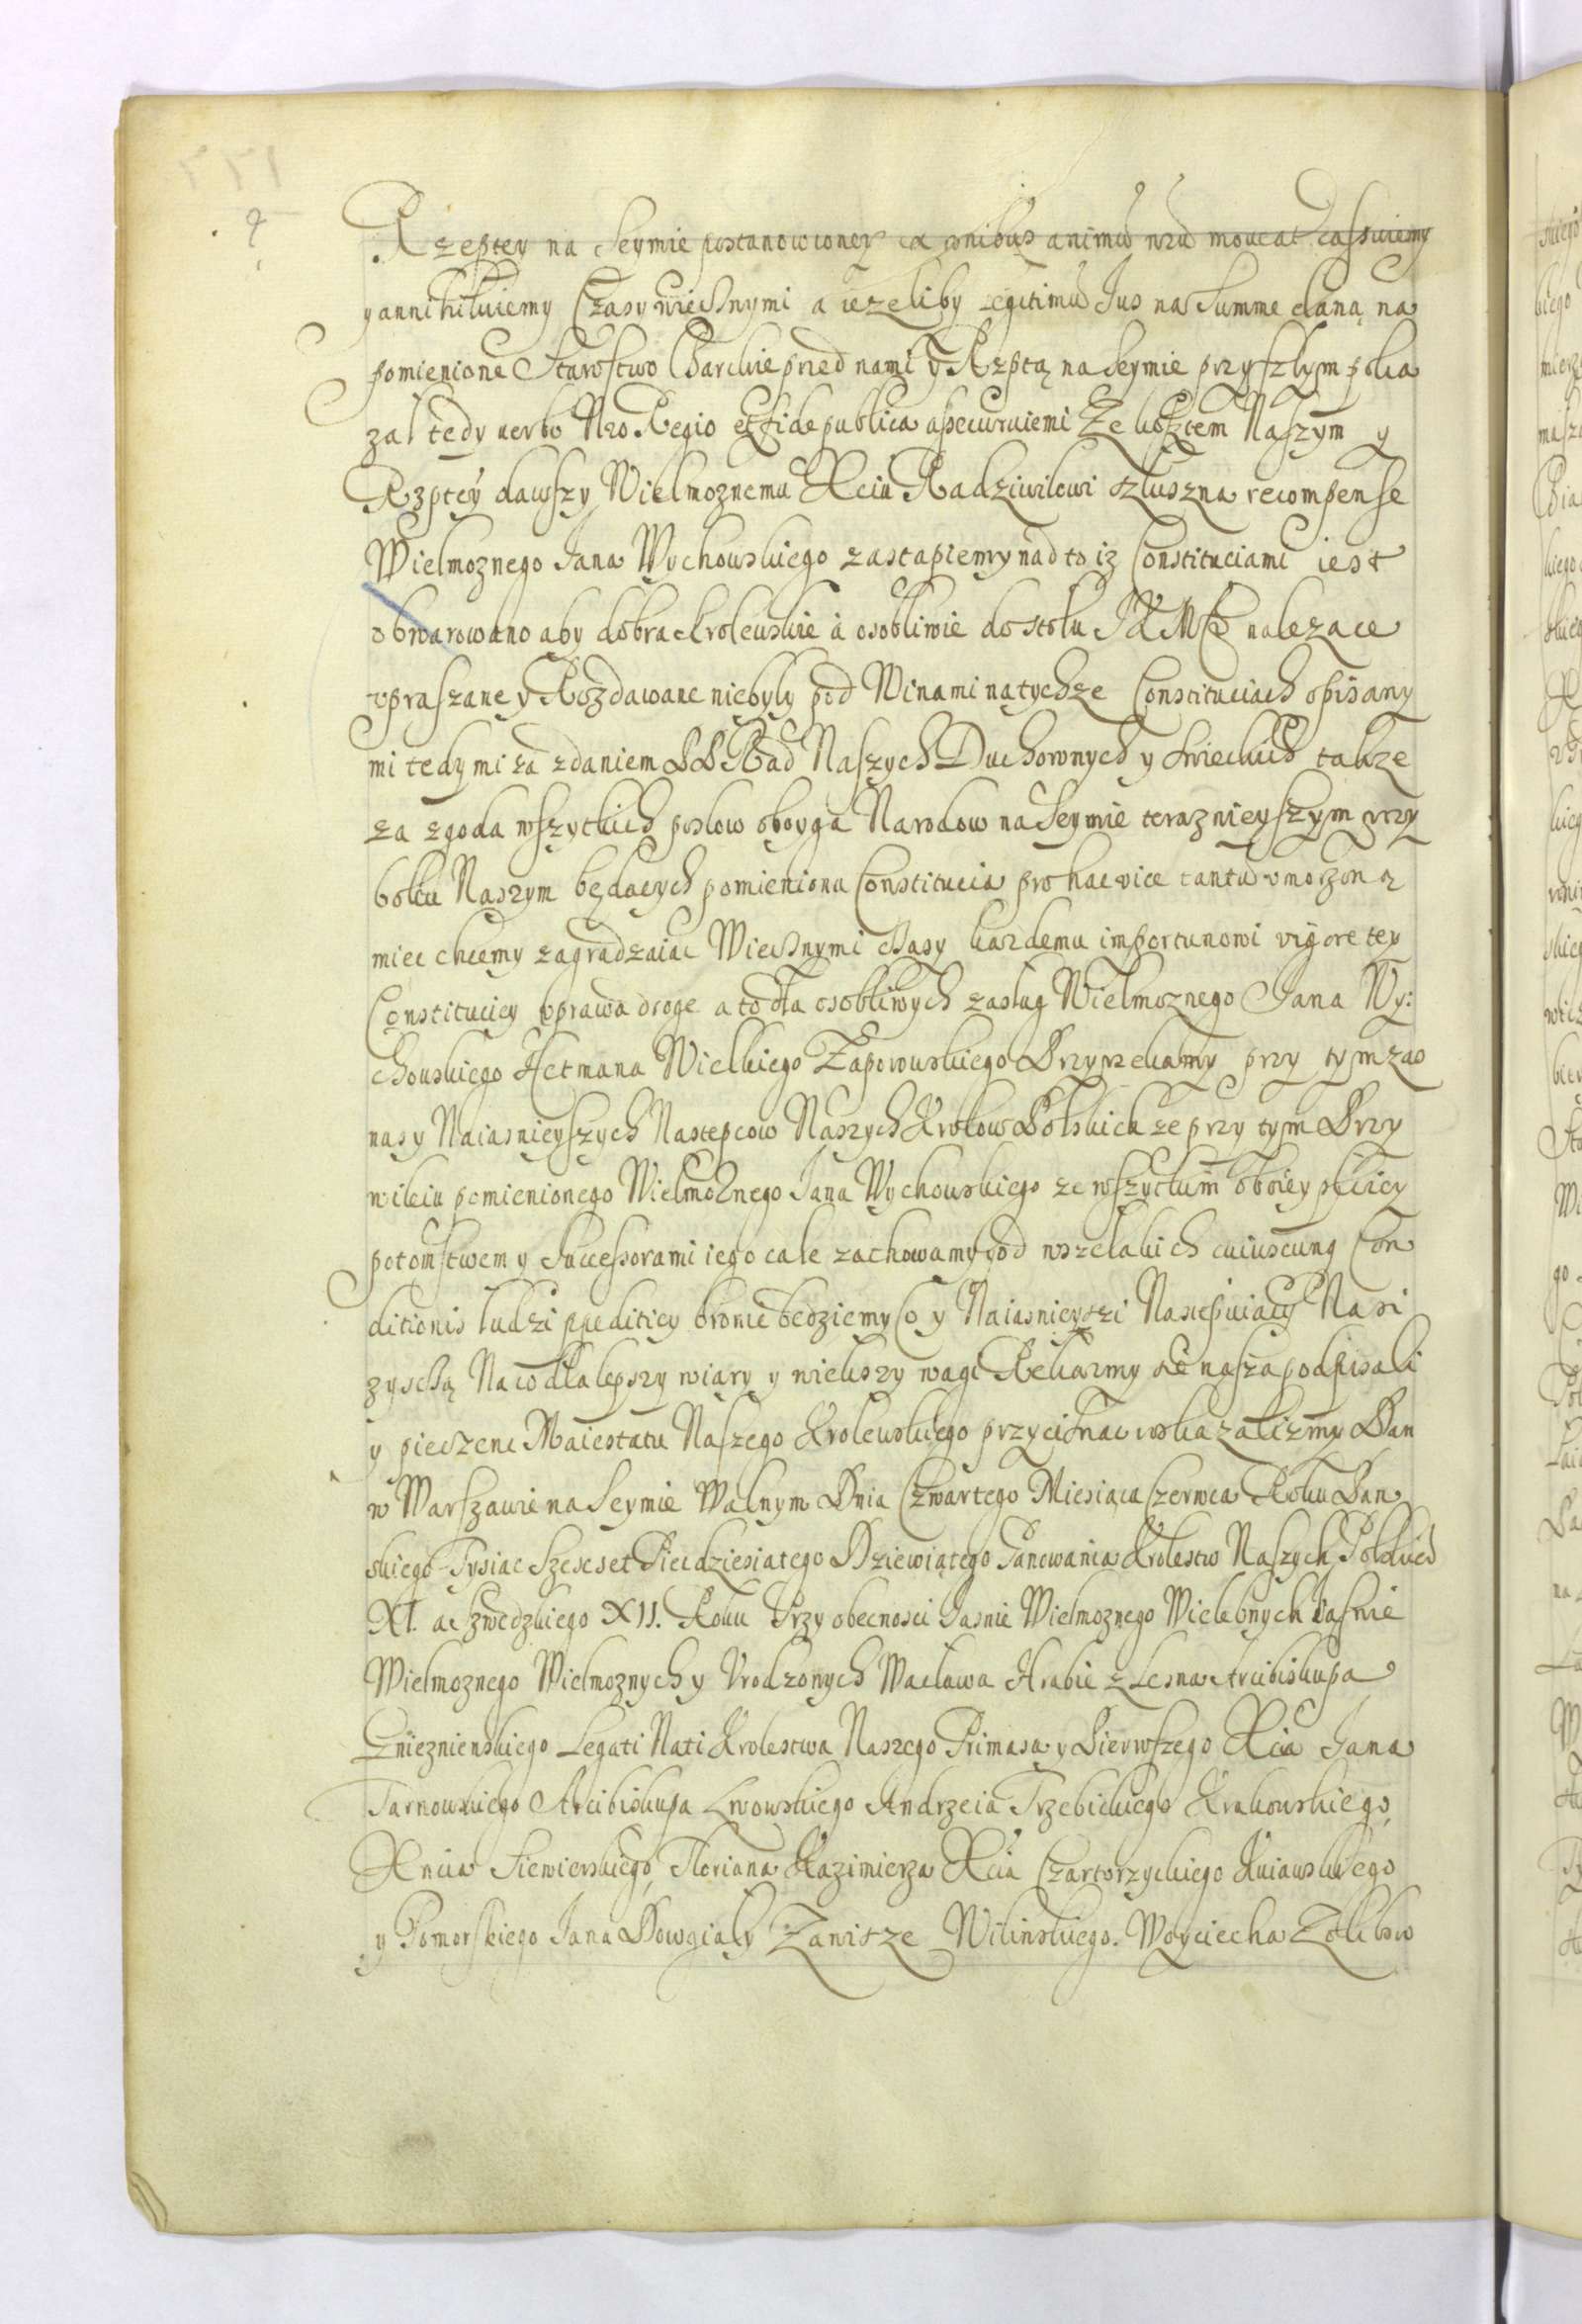 Rzeptey na Seymie postanowioney ex omnibus animũ nrũ moueat cassuiemy
y annihiluiemy Czasy wiecznymi a iezeliby legitimũ Jus na Summe daną na
pomienione Starostwo Barckie przed nami y Rzptą na Seymie przyszłym poka
zał tedy verbo Nro Regio et fide publica assecuruiemi Ze kosztem Naszym y
Rzptey dawszy Wielmoznemu Xciu Radziwilowi szluszna recompense
Wielmoznego Jana Wychowskiego zastapiemy nad to iz Constituciami iest
obwarowano aby dobra Krolewskie a osobliwie do stołu JKMCi nalezace
vpraszane y Rozdawane niebyly pod Winami na tychze Constituciach opisany
mi tedy mi za zdaniem PP Rad Naszych Duchownych y Swieckich takze
za zgoda wszytkich posłow oboyga Narodow na Seymie teraznieyszym przy
boku Naszym będacych pomieniona Constitucia pro hac vice tantũ vmorzoną
miec chcemy zagradzaiac Wiecznymi czasy kazdemu importunowi vigore tey
Constituciey vprawa droge a to dla osobliwych zasług Wielmoznego Jana Wy:
chowskiego Hetmana Wielkiego Zaporowskiego Przyrzekamy przy tym zas
nas y Naiasnieyszych Nastepcow Naszych Krolow Polskich ze przy tym Przy
wileiu pomienionego Wielmoznego Jana Wychowskiego ze wszytkim oboiey płciey
potomstwem y Successorami iego cale zachowamy y od wszelakich cuiuscunq Con
ditionis ludzi ppeditiey bronic bedziemy Co y Naiasnieyszi Nastepuiacy Nasi
zyscżą Na co dla lepszy wiary y wiekszy wagi Rekasmy sie nasza podpisali
y pieczenc Maiestatu Naszego Krolewskiego przycisnac wskazalismy Dan
w Warszawie na Seymie Walnym Dnia Czwartego Miesiąca Czerwca Roku Pan
skiego Tysiac Szescset Piedziesiatego Dziewiątego Panowania Krolestw Naszych Polskie͡
XI. a Szwedzkiego XII. Roku Przy obecnosci Jasnie Wielmoznego Wielebnych Jasnie
Wielmoznego Wielmoznych y Vrodzonych Wacława Hrabie z Lesna Arcibiskupa
Gnieznienskiego Legati Nati Krolestwa Naszego Primasa y Pierwszego Xcia Jana
Tarnowskiego Arcibiskupa Lwowskiego Andrzeia Trzebickiego Krakowskiego,
Xncia Siewierskiego, Floriana Kazimierza Xcia Czartorzyckiego Kuiawskiego
y Pomorskiego Jana Dowgiały Zawisze Wilinskiego. Woyciecha Tolibow